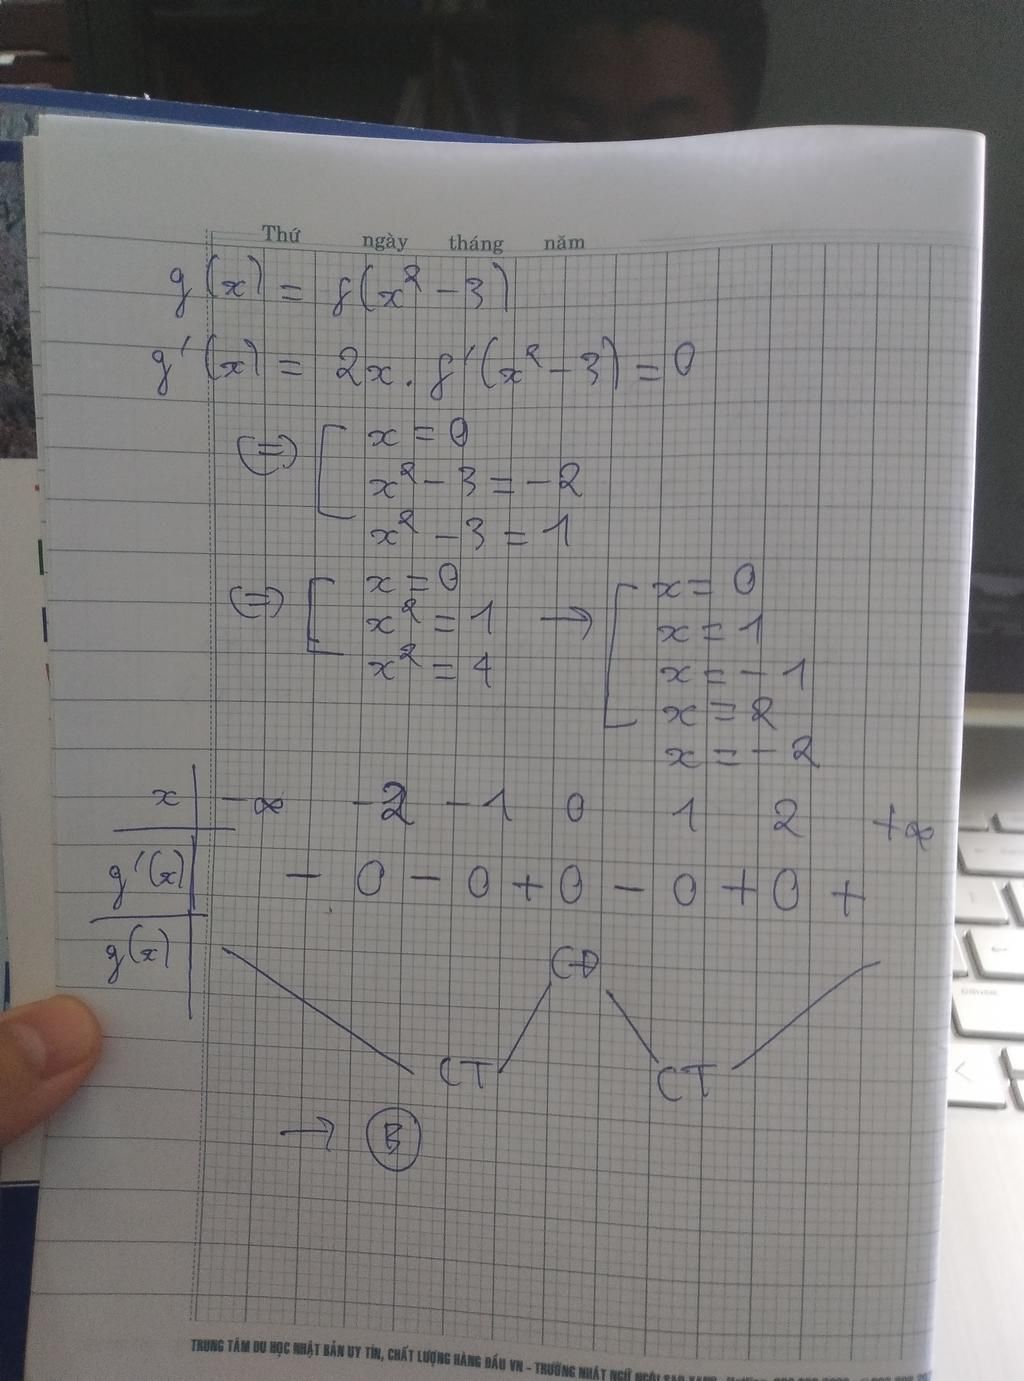 Thứ ngày tháng năm
g(x) = f(x² - 3)
g'(x) = 2x. f'(x² - 3) = 0
(=) [ x = 0
x² - 3 = -2
x² - 3 = 1
(=) [ x = 0
x² = 1
x² = 4
→ [ x = 0
x = 1
x = -1
x = 2
x = -2
x -∞ -2 -1 0 1 2 +∞
g'(x) - 0 - 0 + 0 - 0 + 0 +
g(x) CĐ
CT CT
→ B
TRUNG TÂM DU HỌC NHẬT BẢN UY TÍN, CHẤT LƯỢNG HÀNG ĐẦU VN - TRƯỜNG NHẬT NGỮ